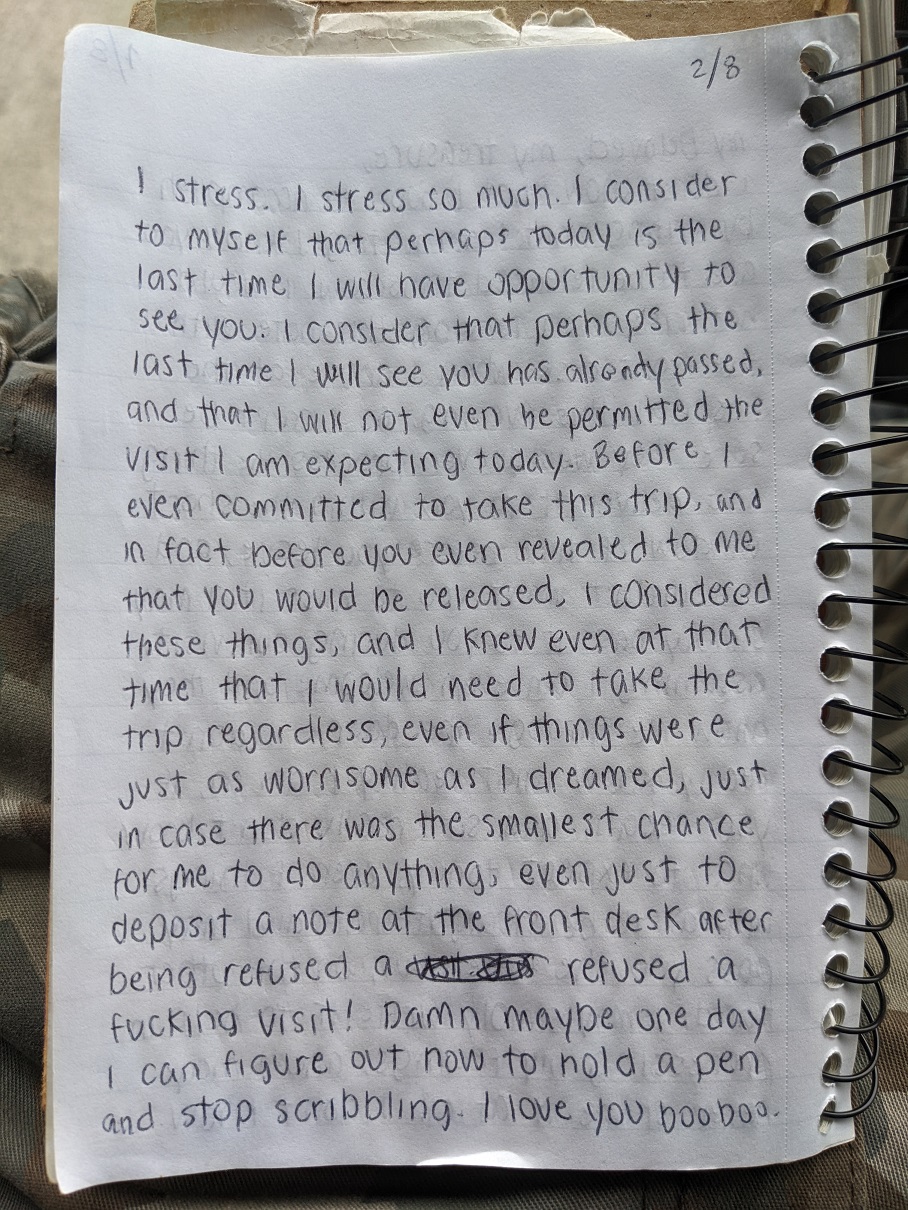 2/8
I stress. I stress so much. I consider
to myself that perhaps today is the
last time I will have opportunity to
see you. I consider that perhaps the
last time I will see you has already passed,
and that I will not even be permitted the
visit I am expecting today. Before I
even committed to take this trip, and
in fact before you even revealed to me
that you would be released, I considered
these things, and I knew even at that
time that I would need to take the
trip regardless, even if things were
just as worrisome as I dreamed, just
in case there was the smallest chance
for me to do anything, even just to
deposit a note at the front desk after
being refused a refused a
fucking visit! Damn maybe one day
I can figure out how to hold a pen
and stop scribbling. I love you boo boo.